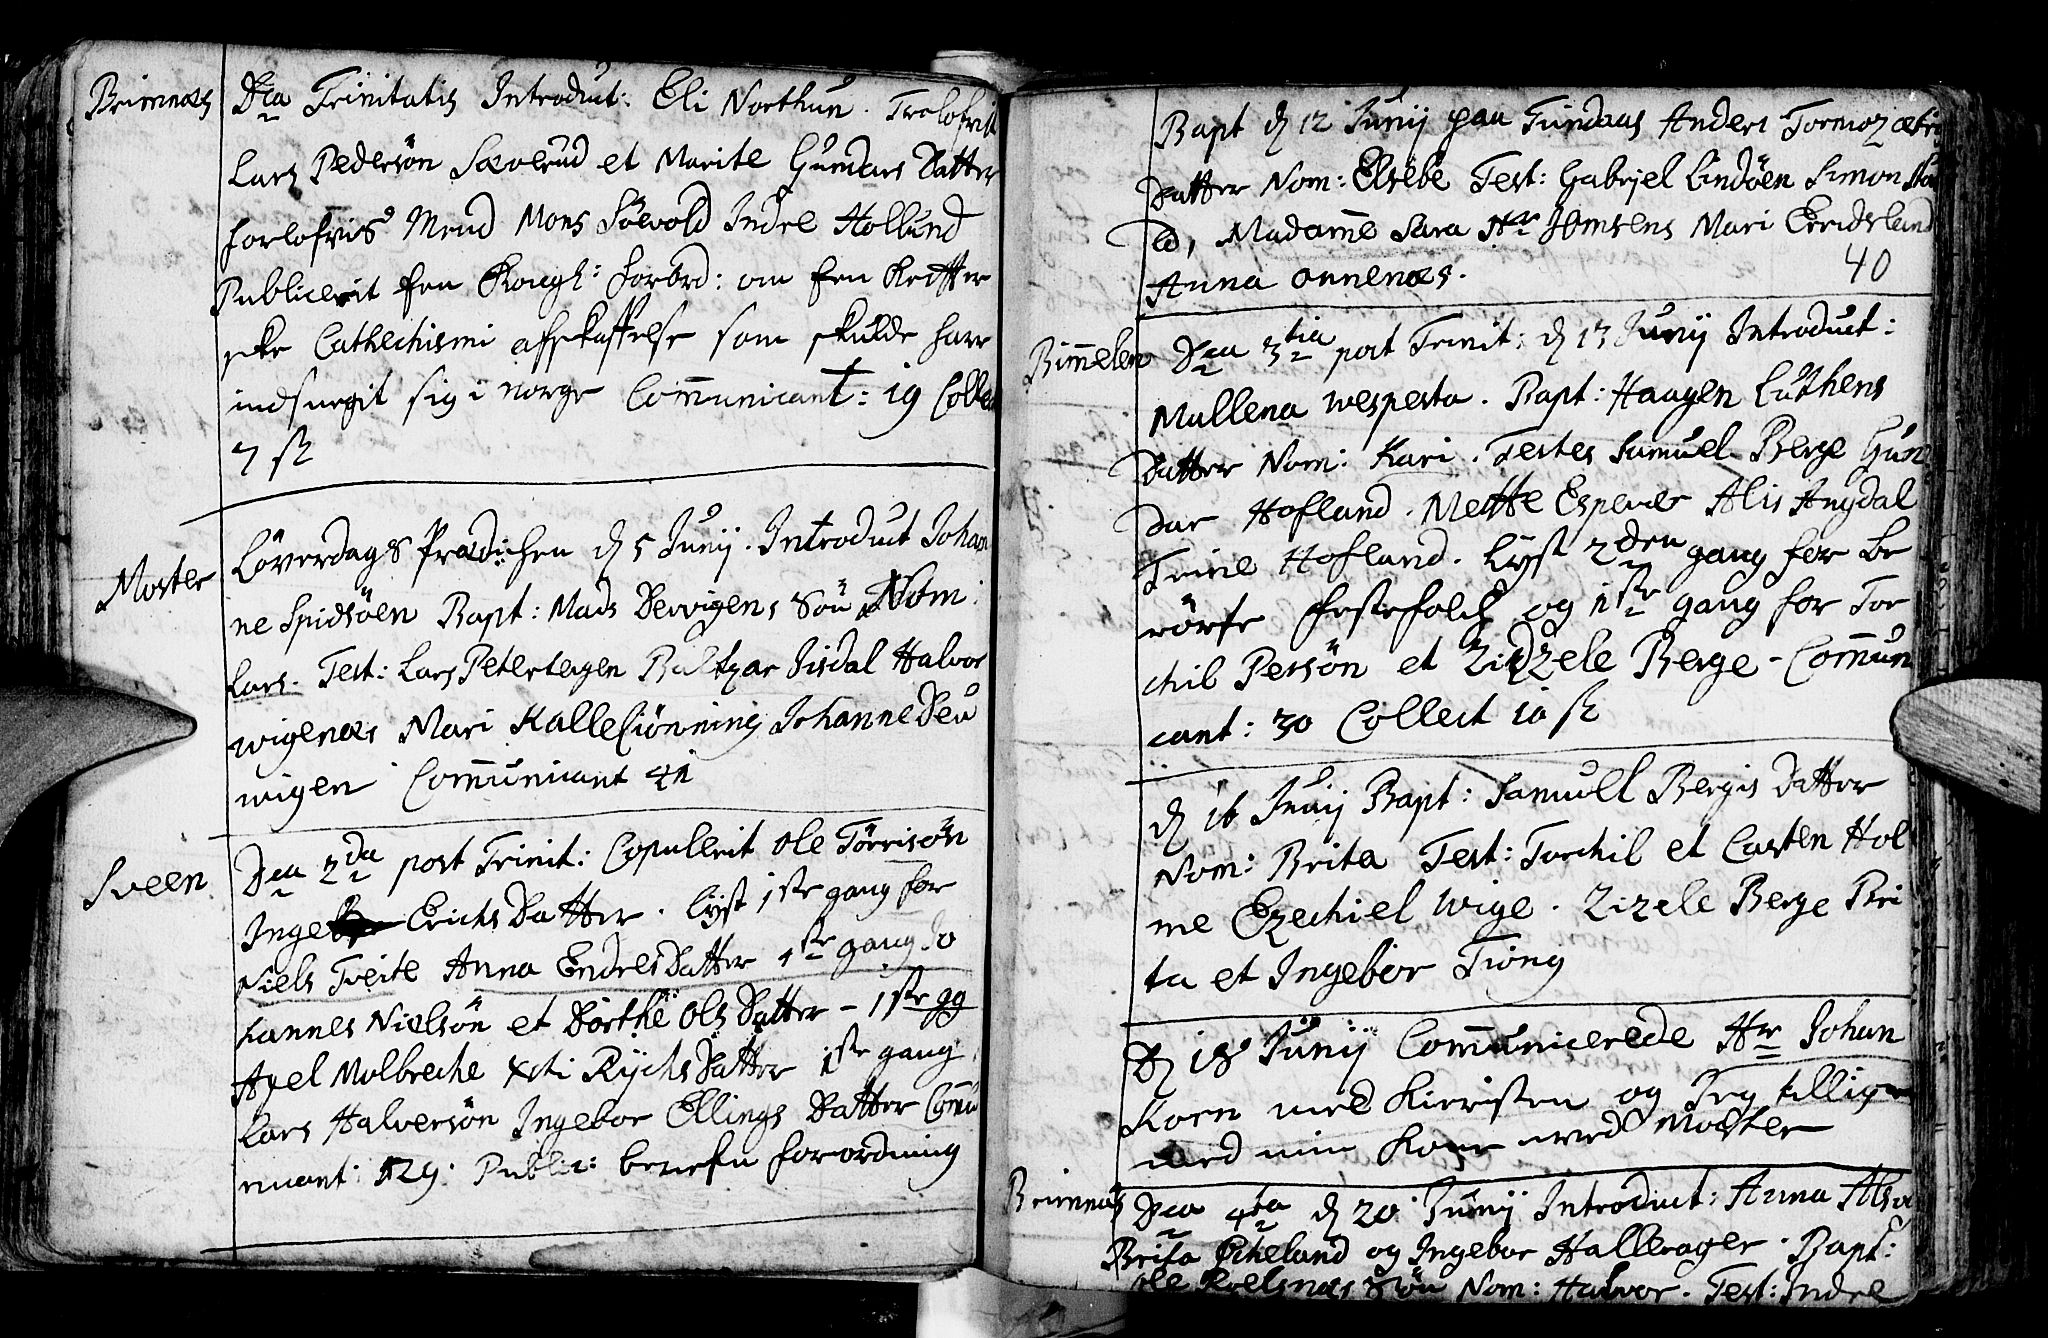 Brimnæs
Dca Trinitatis Introduct: Eli Northun. Trolofvit
Lars Pedersön Sæverud et Marite Gundars Datter
forlofvis Mend Mons Söevold Indre Hollund
Publicerit en Kongl: forord: om
ske Cathechismi afskaffelse som skulde hafve
indsneget sig i norge Communicant: 19 Collect
7 sk
Moster
Löverdags Prædichen d 5 Junij. Introduct Johan
ne Spidsöen Bapt: Mads Dervigens Sön Nom:
Lars. Test: Lars Petertegen Baltzar Jisdal Halvor
wigenæs Mari Kallesiönning Johanne Deu
wigen Communicant 41
Sveen
Dca 2da post Trinit: Copulerit Ole Törrisön
Inge Erichs Datter. Lyst 1ste gang for
Niels Tveite Anna Endres Datter 1ste gang Jo
hannes Nielsön et Dorthe Ols Datter - 1ste gg
Axel Molbreche Rychs Datter 1ste gang
Lars Halversön Ingebor Ellings Datter Commu
nicant: 129: Public: benefn forordning
Bapt d 12 Junij paa Tindaas Anders Tormoz
Datter Nom: Elsebe Test: Gabrjel Lindöen Simon
Madame Sara Hr Jemsens Mari Eeridsland
Anna Onnenæs.
40
Bimmelen
Dca 3tia post Trinit: d 13 Junij Introduct:
Mallena Wespesta. Bapt: Haagen Luthens
Datter Nom: Kari. Testes Samuel Berge Gun
dar Hofland. Mette Espevær Alis Angdal
Trine Hofland. Lyst 2den gang for be
rörte festefolch og 1ste gang for Tor
chil Persön et Zidzele Berge - Commun
cant: 30 Collect 10 sk
d 16 Junij Bapt: Samuell Bergis Datter
Nom: Brita Test: Torchil et Carsten Hol
me Ezechiel Wige. Zizele Berge Bri
ta et Ingebor Tiong
D 18 Junij Communicerede Hr Johan
Koren med Kieristen og Jeg tillige
med min Kone med Moster
Brimnæs
Dca 4ta d 20 Junij Introduct: Anna
Brita Echeland og Ingebor Hallerager. Bapt:
Ole Roelsnæs Sön Nom: Halvor. Test: Indre